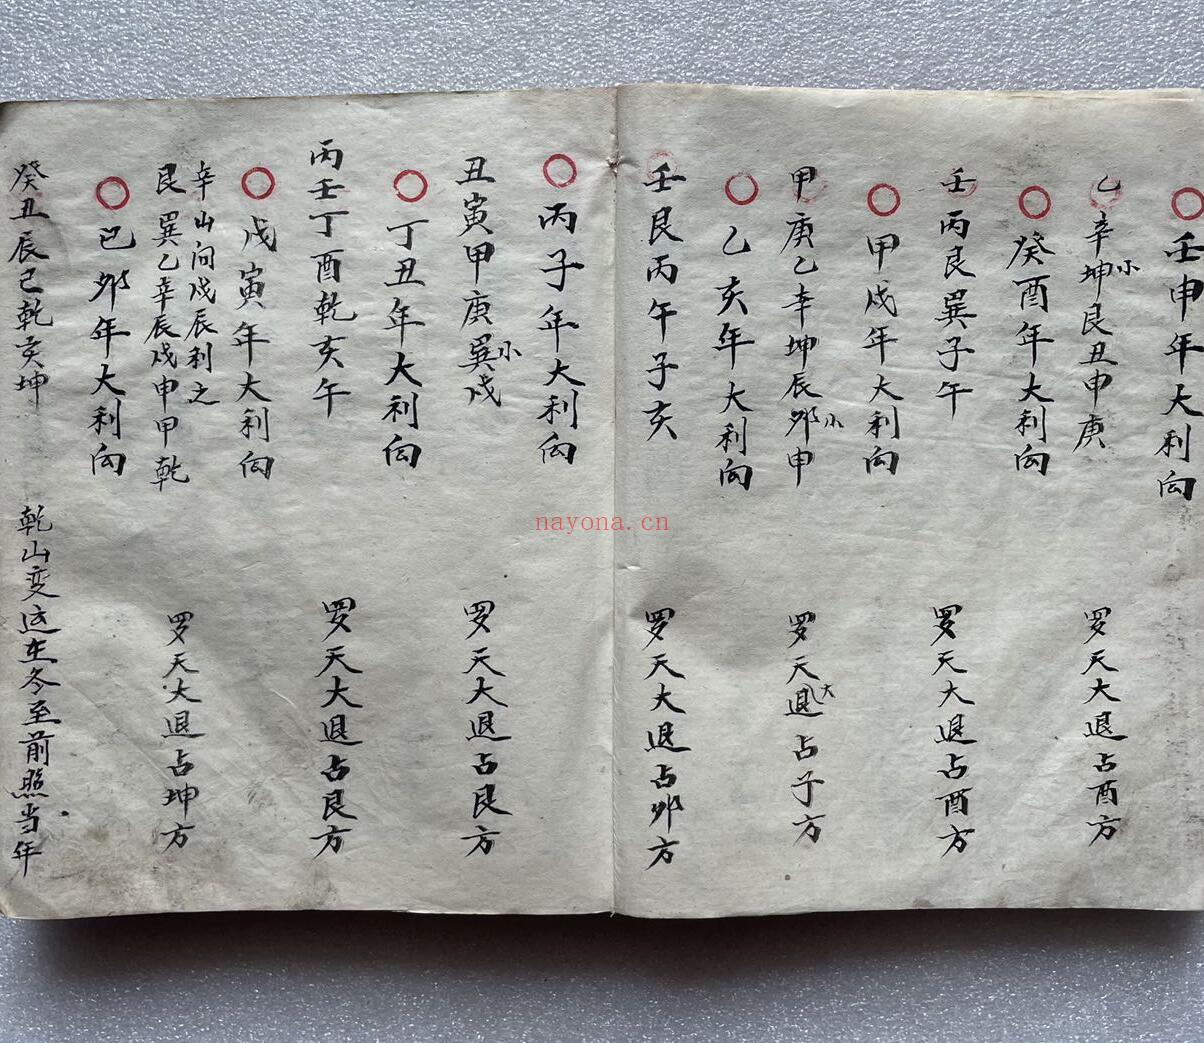 壬申年大利向
乙辛坤小艮丑申庚
罗天大退占酉方
癸酉年大利向
壬丙艮巽子午
罗天大退占酉方
甲戌年大利向
甲庚乙辛坤辰卯小申
罗天大退占子方
乙亥年大利向
壬艮丙午子亥
罗天大退占卯方
丙子年大利向
丑寅甲庚巽小戌
罗天大退占艮方
丁丑年大利向
丙壬丁酉乾亥午
罗天大退占艮方
戊寅年大利向
辛山问戊辰利之
艮巽乙辛辰戌申甲乾
罗天大退占坤方
己卯年大利向
癸丑辰巳乾亥坤
乾山变运在冬至前照当年
nayona.cn